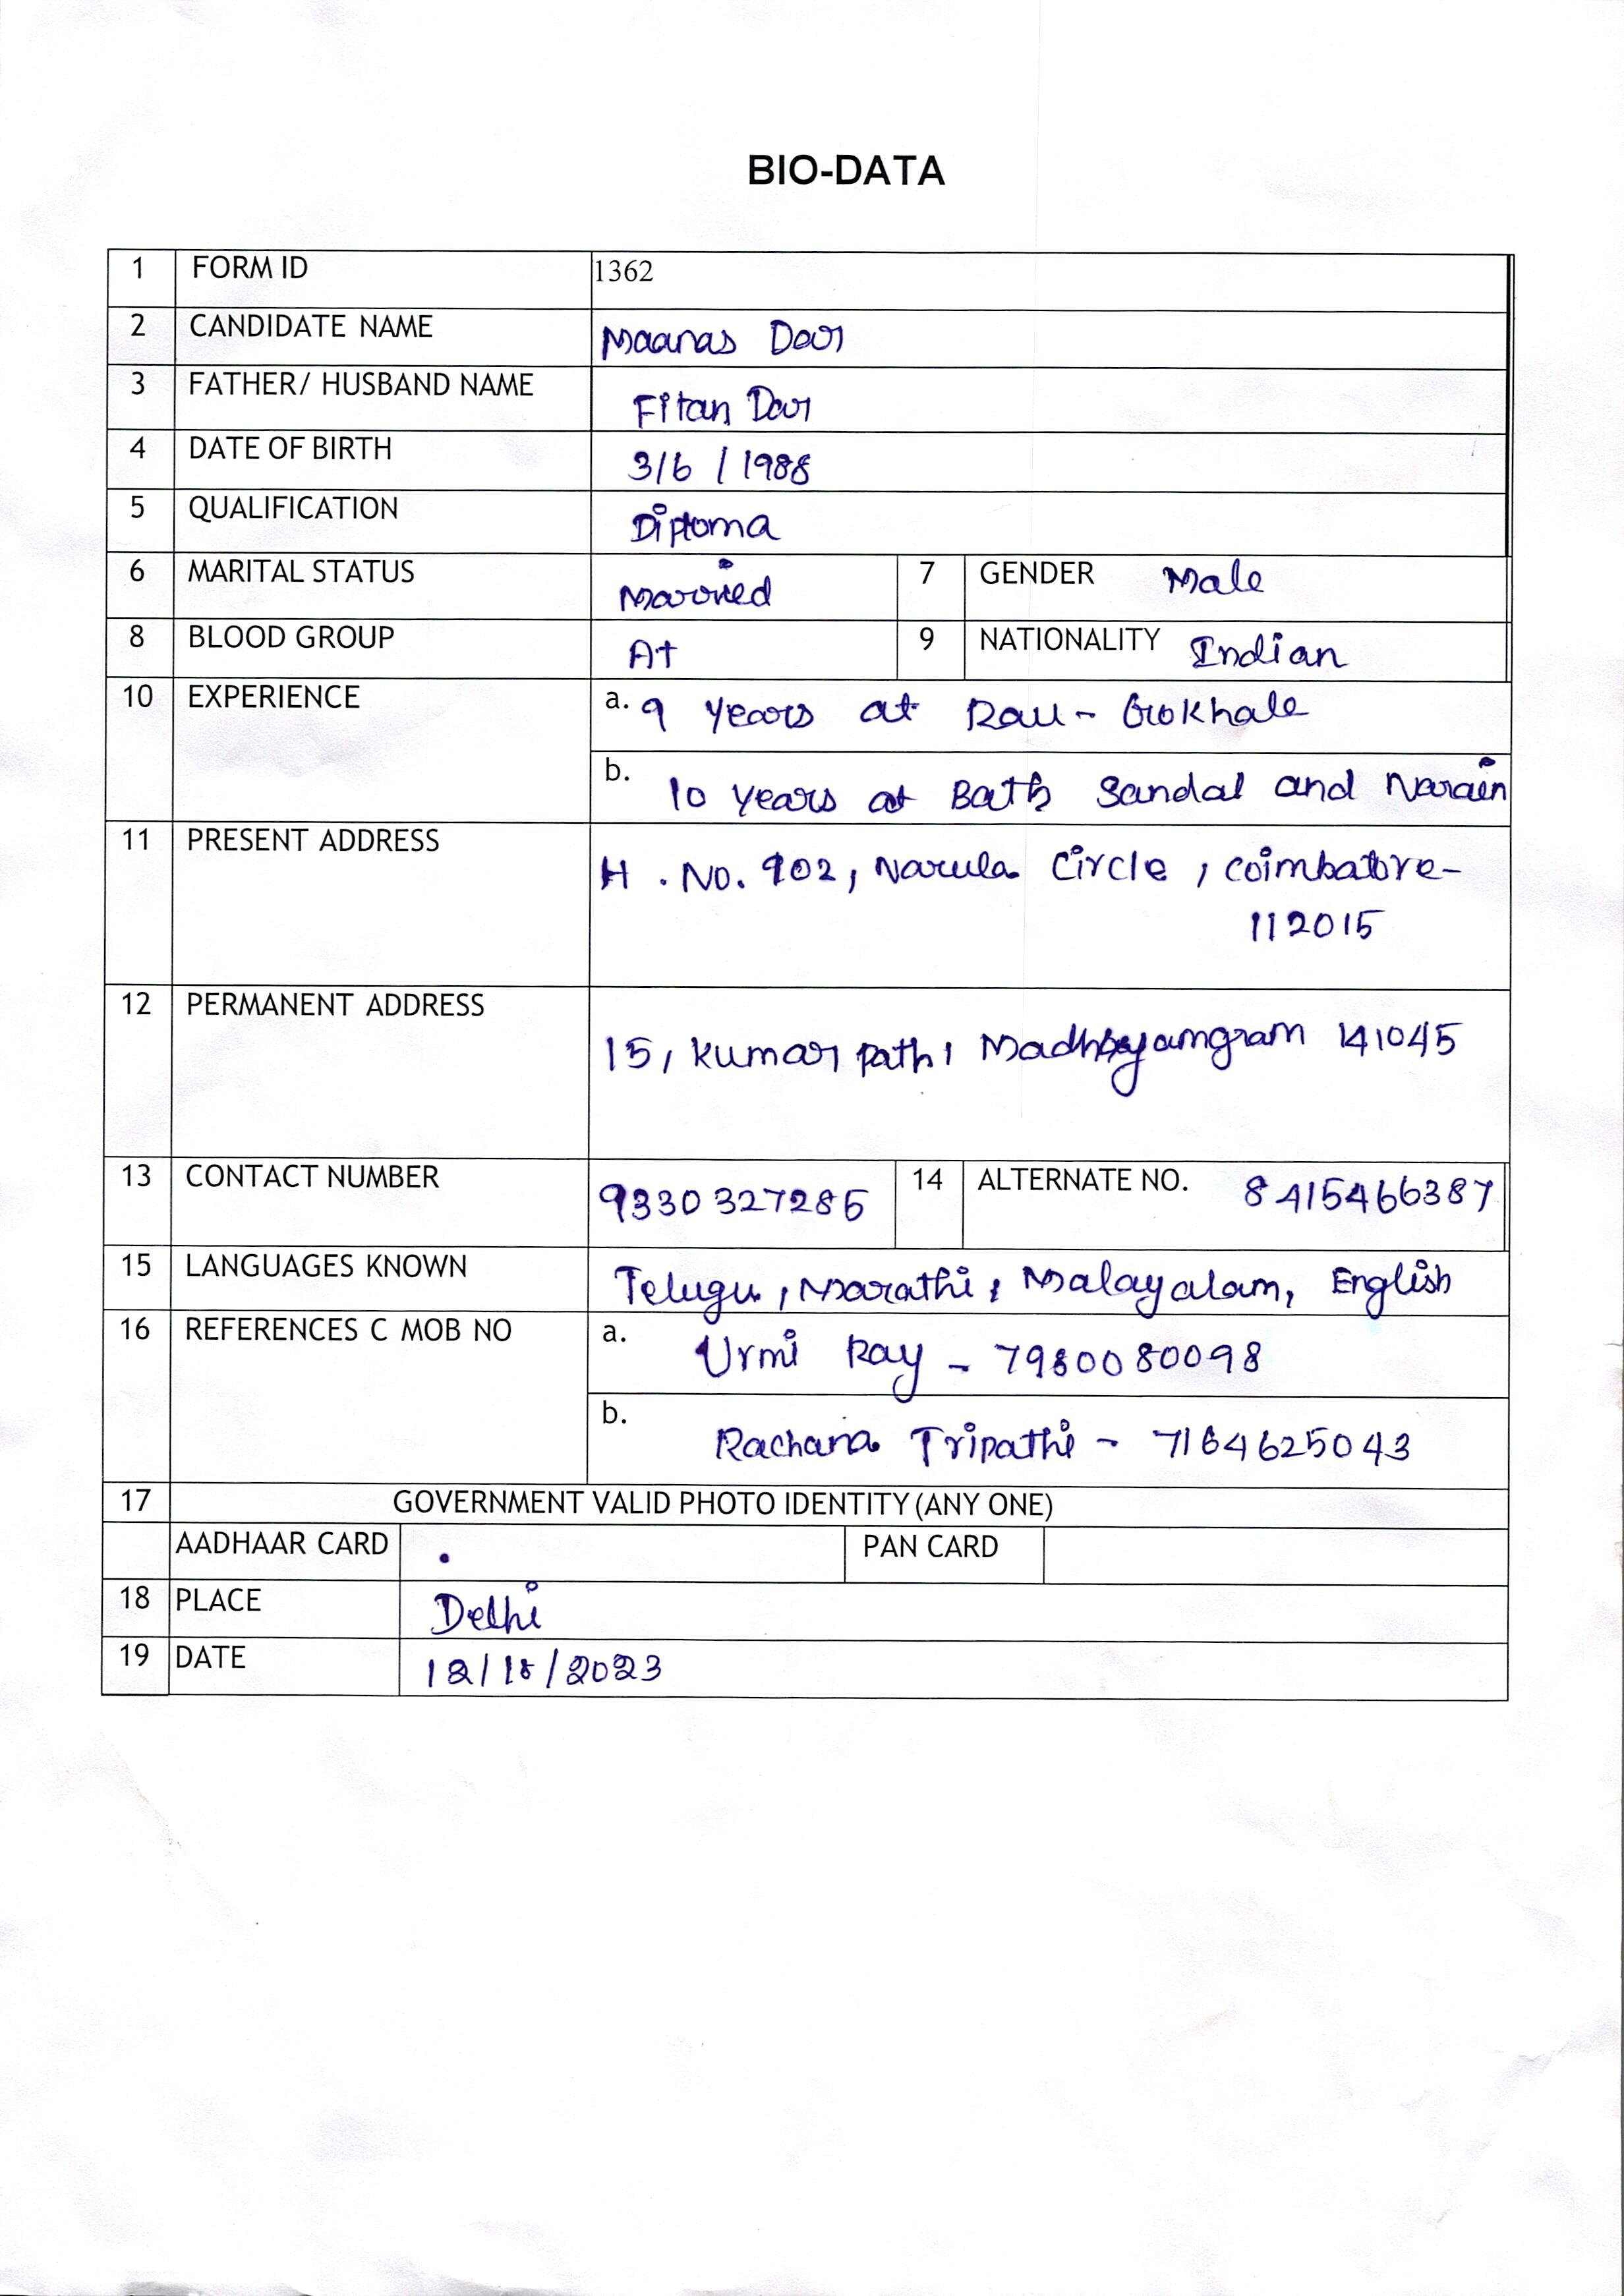 BIO-DATA
1 FORM ID 1362
2 CANDIDATE NAME Maanas Dar
3 FATHER/ HUSBAND NAME Fitan Dar
4 DATE OF BIRTH 3/6 / 1988
5 QUALIFICATION Diploma
6 MARITAL STATUS Married 7 GENDER Male
8 BLOOD GROUP A+ 9 NATIONALITY Indian
10 EXPERIENCE a. 9 years at Rau - Gokhale
b. 10 years at Bath Sandal and Narain
11 PRESENT ADDRESS H. No. 902, Narula Circle, Coimbatore-
112015
12 PERMANENT ADDRESS 15, Kumar path, Madhyamgram 141045
13 CONTACT NUMBER 9330327285 14 ALTERNATE NO. 8415466387
15 LANGUAGES KNOWN Telugu, Marathi, Malayalam, English
16 REFERENCES C MOB NO a. Urmi Ray - 7980080098
b. Rachana Tripathi - 7164625043
17 GOVERNMENT VALID PHOTO IDENTITY (ANY ONE)
AADHAAR CARD PAN CARD
18 PLACE Delhi
19 DATE /2023